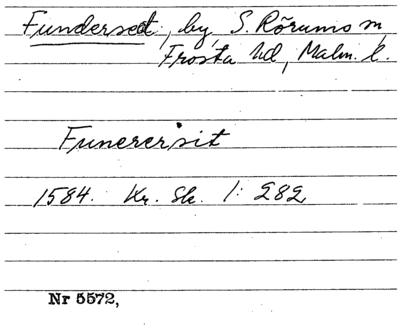 Fundersed, by, S. Rörums sn,
Frosta hd, Malm. l.
Funerersit
1584. Kr. Sk. 1: 282
Nr 5572,